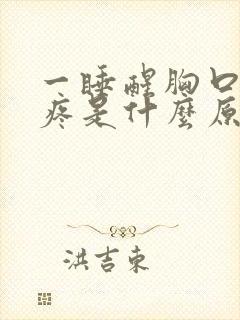 一睡醒胸口
疼是什麼原
洪吉東